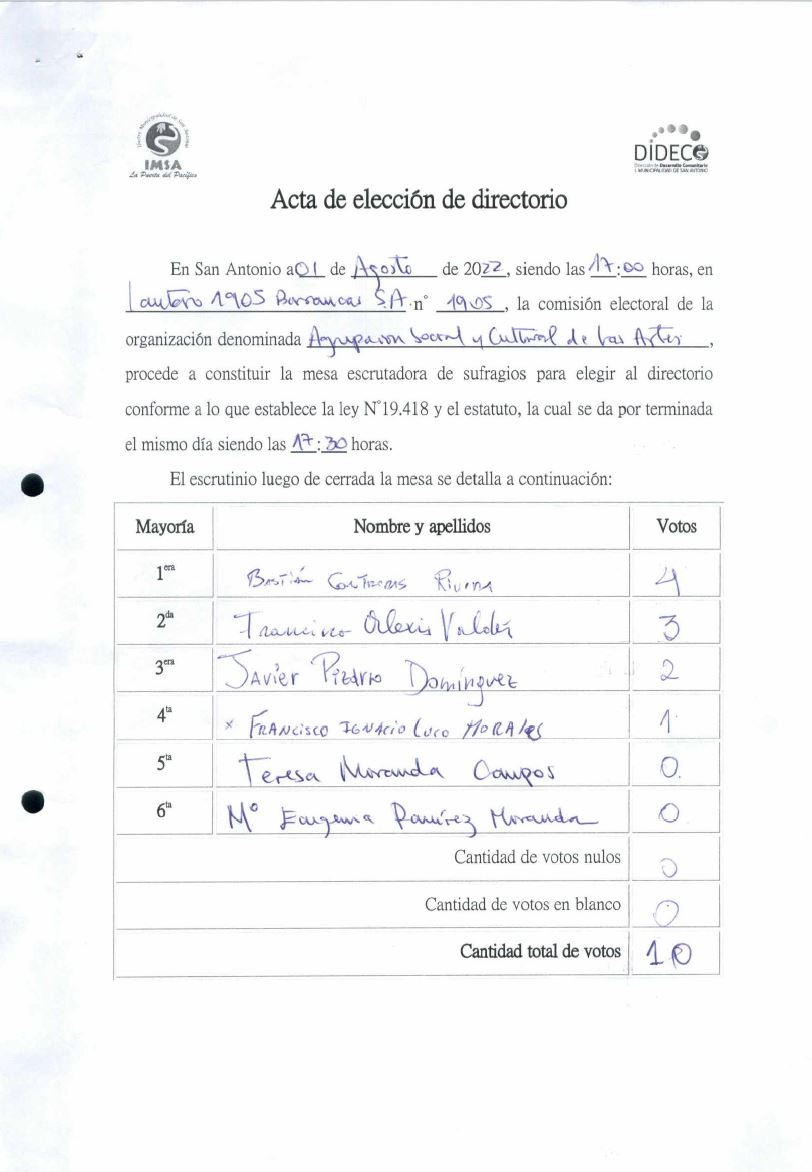 Ilustre Municipalidad de San Antonio
IMSA
La Puerta del Pacífico
DIDECO
Dirección de Desarrollo Comunitario
I. MUNICIPALIDAD DE SAN ANTONIO
Acta de elección de directorio
En San Antonio a 01 de Agosto de 2022, siendo las 17:00 horas, en
Lautaro 1905 Barrancas S.A. n° 1905, la comisión electoral de la
organización denominada Agrupacion Social y Cultural de Las Artes,
procede a constituir la mesa escrutadora de sufragios para elegir al directorio
conforme a lo que establece la ley N°19.418 y el estatuto, la cual se da por terminada
el mismo día siendo las 17:30 horas.
El escrutinio luego de cerrada la mesa se detalla a continuación:
Mayoría Nombre y apellidos Votos
1era Bastián Contreras Rivera 4
2da Francisco Alexis Valdés 3
3era Javier Pizarro Domínguez 2
4ta x FRANCISCO IGNACIO Luco MORAles 1
5ta Teresa Moranda Campos 0.
6ta Mº Eugenia Ramírez Moranda 0
Cantidad de votos nulos 0
Cantidad de votos en blanco 0
Cantidad total de votos 10